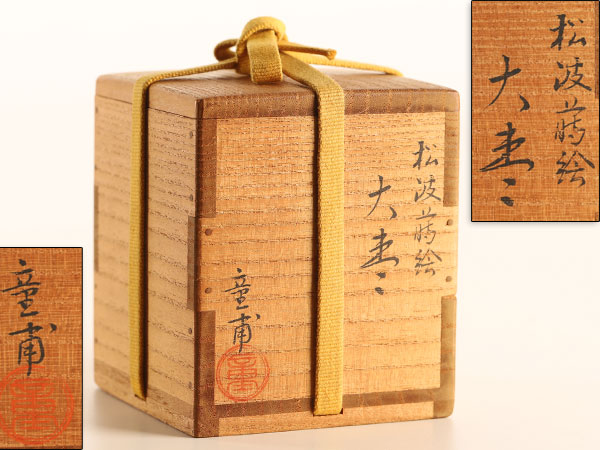 松波蒔絵
大棗
童甫
松波蒔絵
大棗
童甫